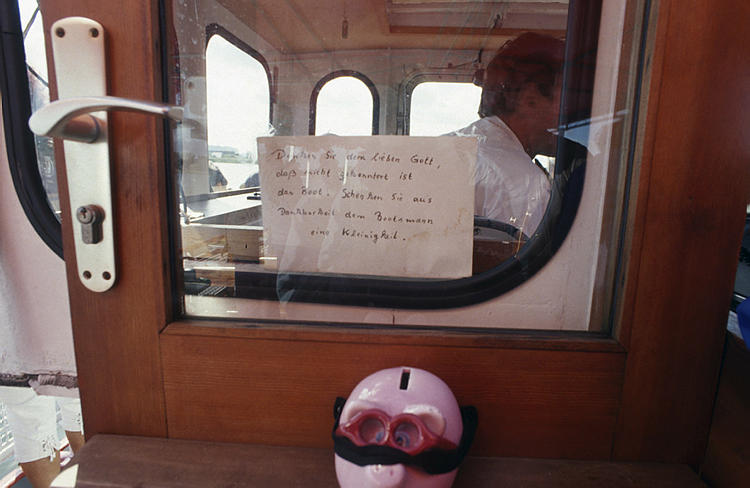 Danken Sie dem lieben Gott,
daß nicht gekentert ist
das Boot. Schenken Sie aus
Dankbarkeit dem Bootsmann
eine Kleinigkeit.